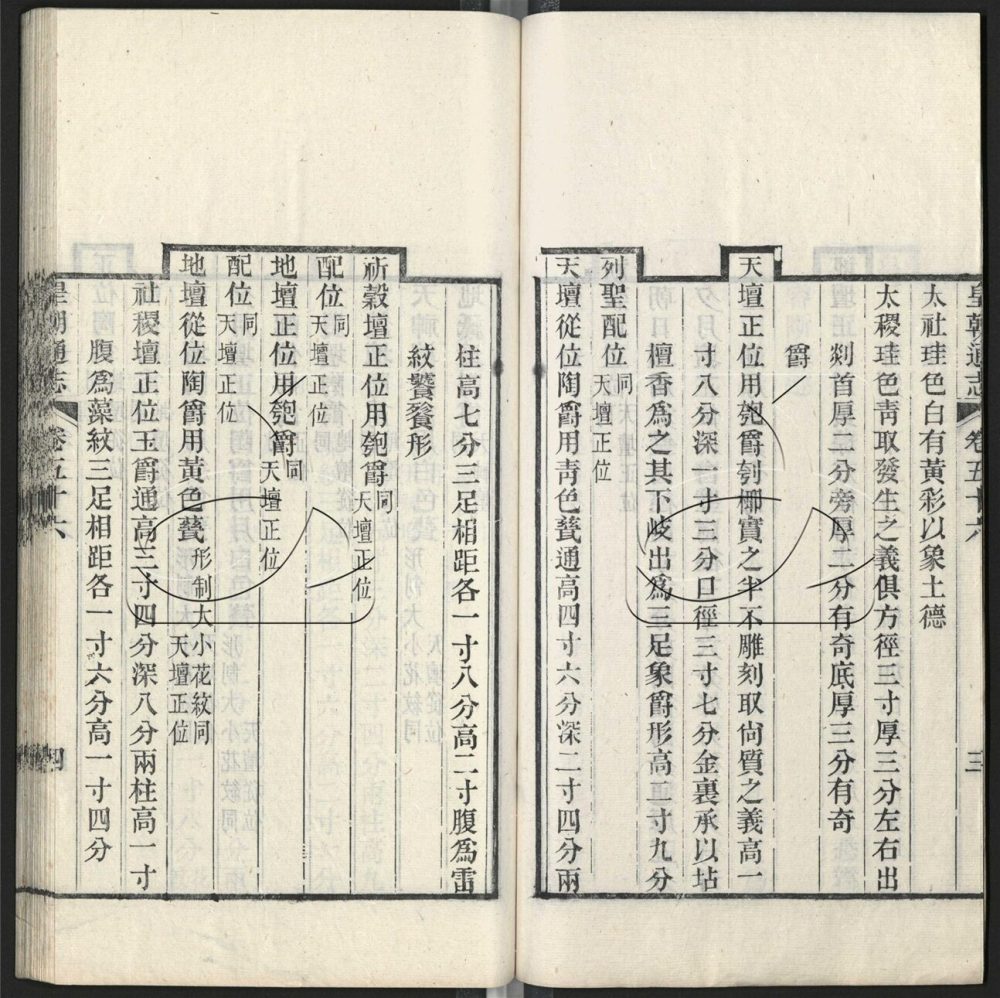 皇朝通志 卷五十六 三
太社珪色白有黃彩以象土德
太稷珪色靑取發生之義俱方徑三寸厚三分左右出
剡首厚二分旁厚二分有奇底厚三分有奇
爵
天壇正位用匏爵刳椰實之半不雕刻取尙質之義高一
寸八分深一寸三分口徑三寸七分金裏承以坫
檀香爲之其下歧出爲三足象爵形高二寸九分
列聖配位同天壇正位
天壇從位陶爵用靑色甆通高四寸六分深二寸四分兩
柱高七分三足相距各一寸八分高二寸腹爲雷
紋饕餮形
祈穀壇正位用匏爵同天壇正位
配位同天壇正位
地壇正位用匏爵同天壇正位
配位同天壇正位
地壇從位陶爵用黃色甆形制大小花紋同天壇正位
社稷壇正位玉爵通高三寸四分深八分兩柱高一寸
腹爲藻紋三足相距各一寸六分高一寸四分
皇朝通志 卷五十六 四